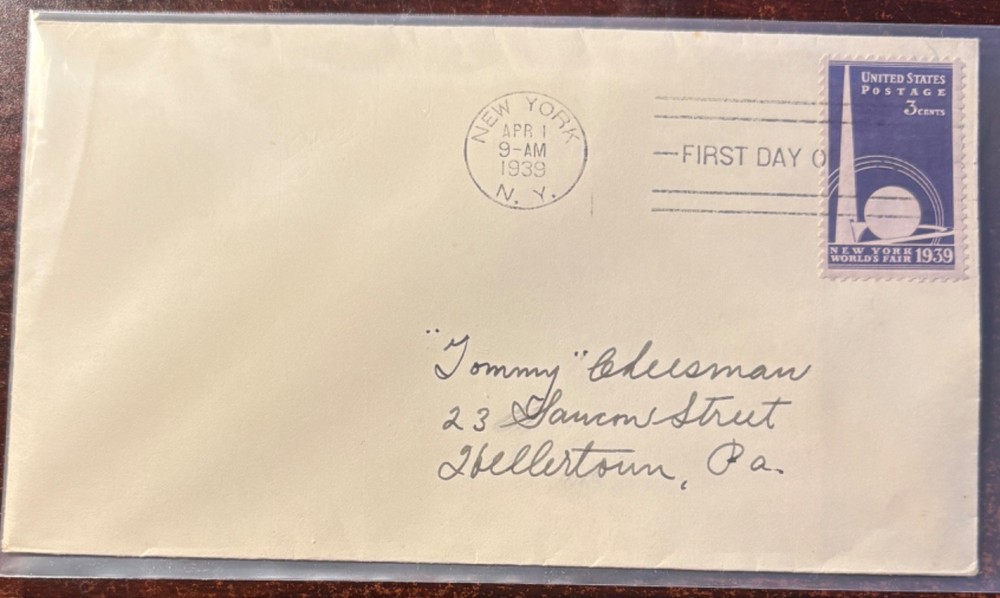 NEW YORK
APR 1
9-AM
1939
N. Y.
FIRST DAY O
UNITED STATES
POSTAGE
3 CENTS
NEW YORK
WORLD'S FAIR 1939
"Tommy" Cheesman
23 Saucon Street
Hellertown, Pa.